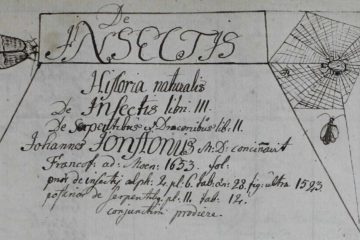 De
INSECTIS
Historia naturalis
De Insectis libri III.
De Serpentibus & Draconibus lib: II.
Johannes Jonstonus M: D: concinavit
Francof: ad: Moen: 1653. fol:
prior de insectis alph: 2. pl: 6. tab: æn: 28. fig: ultra 1523
posterior de Serpentib, pl: 11. tab: 12.
conjunctim prodiere.